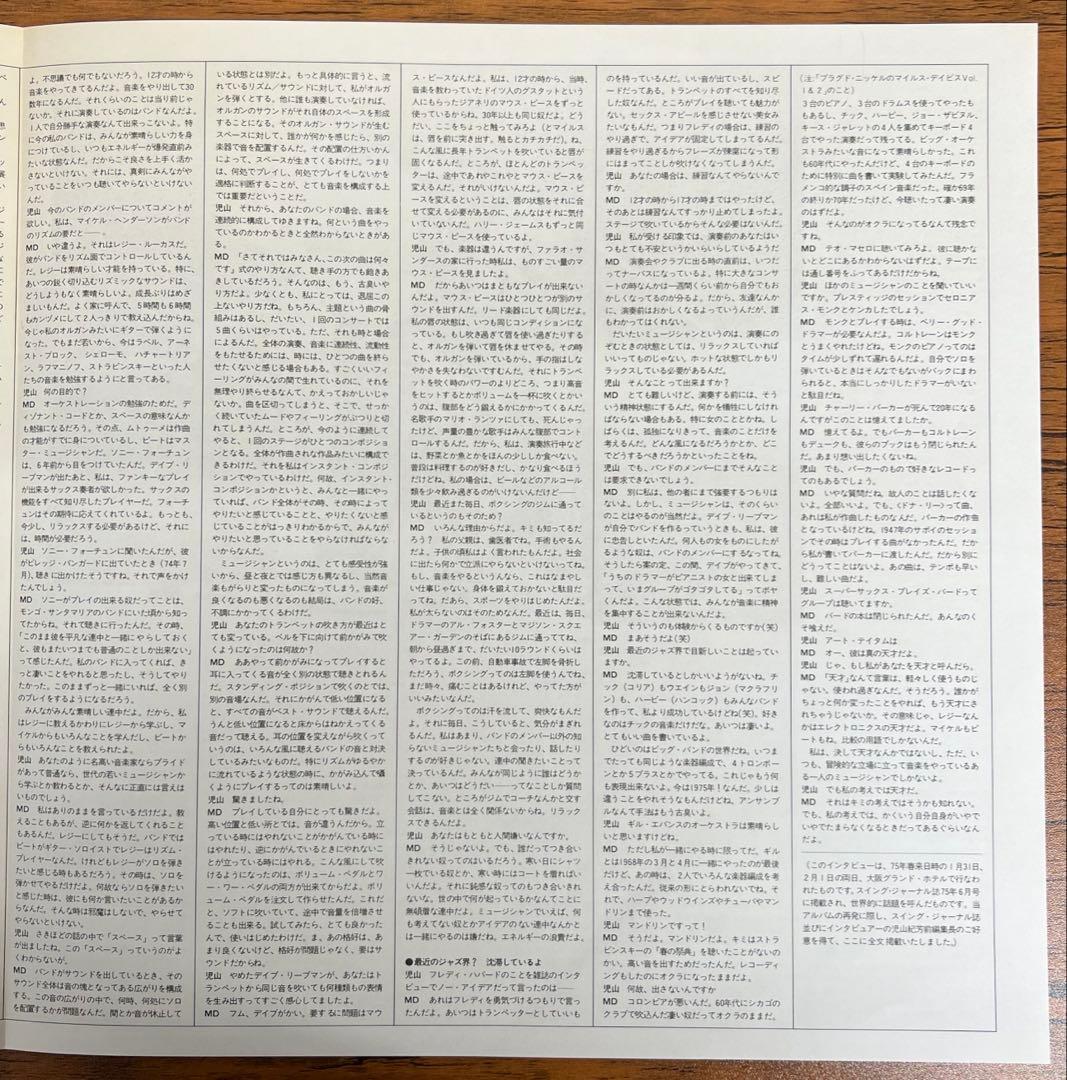 よ。不思議でも何でもないだろう。12才の時から
音楽をやってきてるんだよ。音楽をやり出して30
数年になるんだ。それくらいのことは当り前じゃ
ないか。それに演奏しているのはバンドなんだよ。
1人で自分勝手な演奏なんて出来っこないよ。特
に今の私のバンドは、みんなが素晴らしい力を身
につけているし、いつもエネルギーが爆発直前み
たいな状態なんだ。だからこそ良さを上手く活か
さないといけない。それには、真剣にみんながや
っていることをいつも聴いてやらないといけない
んだ。
児山 今のバンドのメンバーについてコメントが
欲しい。私は、マイケル・ヘンダーソンがバンド
のリズムの要だと――。
MD いや違うよ。それはレジー・ルーカスだ。
彼がバンドをリズム面でコントロールしているん
だ。レジーは素晴らしい才能を持っている。特に、
あいつの鋭く切り込むリズミックなサウンドは、
どうしようもなく素晴らしいよ。成長ぶりはめざ
ましいもんだ。よく家に呼んで、5時間も6時間
もカンヅメにして2人っきりで教え込んだからね。
今じゃ私のオルガンみたいにギターで弾くように
なった。でもまだ若いから、今はラベル、アーネ
スト・ブロック、シェローモ、ハチャートリア
ン、ラフマニノフ、ストラビンスキーといった人
たちの音楽を勉強するようにと言ってある。
児山 何の目的で?
MD オーケストレーションの勉強のためだ。デ
ィソナント・コードとか、スペースの意味なんか
も勉強になるだろう。その点、ムトゥーメは作曲
の才能がすでに身についているし、ビートはマス
ター・ミュージシャンだ。ソニー・フォーチュン
は、6年前から目をつけていたんだ。デイブ・リ
ーブマンが出たあと、私は、ファンキーなプレイ
が出来るサックス奏者が欲しかった。サックスの
機能をすべて知り尽したプレイヤーだ。フォーチ
ュンはその期待に応えてくれているよ。もっとも、
今少し、リラックスする必要があるけど、それに
は、時間が必要だろう。
児山 ソニー・フォーチュンに聞いたんだが、彼
がビレッジ・バンガードに出ていたとき(74年7
月)、聴きに出かけたそうですね。それで声をかけ
たんでしょう。
MD ソニーがプレイの出来る奴だってことは、
モンゴ・サンタマリアのバンドにいた頃から知っ
てたからね。それで聴きに行ったんだ。その時、
「このまま彼を平凡な連中と一緒にやらしておく
と、彼もまたいつまでも普通のことしか出来ない」
って感じたんだ。私のバンドに入ってくれば、き
っと凄いことをやれると思ったし、そうしてやり
たかった。このままずっと一緒にいれば、全く別
のプレイをするようになるだろう。
 みんながみんな素晴しい連中だよ。だから、私
はレジーに教えるかわりにレジーから学ぶし、マ
イケルからもいろんなことを学んだし、ビートか
らもいろんなことを教えられたよ。
児山 あなたのように名高い音楽家ならプライド
があって普通なら、世代の若いミュージシャンか
ら学ぶとか教わるとか、そんなに正直には言えは
いものでしょう。
MD 私はありのままを言っているだけだよ。教
えることもあるが、逆に何かを返してくれること
もあるんだ。レジーにしてもそうだ。バンドでは
ビートがギター・ソロイストでレジーはリズム・
プレイヤーなんだ。けれどもレジーがソロを弾き
たいと感じる時もあるだろう。その時は、ソロを
弾かせてやるだけだよ。何故ならソロを弾きたい
と感じた時は、彼にも何か言いたいことがあるか
らなんだ。そんな時は邪魔はしないで、やらせて
やらないといけない。
児山 さきほどの話の中で「スペース」って言葉
が出ましたね。この「スペース」っていうのがよ
くわからないが。
MD バンドがサウンドを出しているとき、その
サウンド全体は音の塊となってある広がりを構成
する。この音の広がりの中で、何時、何処にソロ
を配置するかが問題なんだ。間とか音が休止して
いる状態とは別だよ。もっと具体的に言うと、流
れているリズム/サウンドに対して、私がオルガ
ンを弾くとする。他に誰も演奏していなければ、
オルガンのサウンドがそれ自体のスペースを形成
することになる。そのオルガン・サウンドが生む
スペースに対して、誰かが何かを感じたら、別の
楽器で音を配置するんだ。その配置の仕方いかん
によって、スペースが生きてくるわけだ。つまり
は、何処でプレイし、何処でプレイをしないかを
適格に判断することが、とても音楽を構成する上
では重要だということだ。
児山 それから、あなたのバンドの場合、音楽を
連続的に構成してゆきますね。何という曲をやっ
ているのかわかるときと全然わからないときがあ
る。
MD 「さてそれではみなさん、この次の曲は何々
です」式のやり方なんて、聴き手の方でも飽きあ
きしているだろう。そんなのは、もう、古臭いや
り方だよ。少なくとも、私にとっては、退屈この
上ないやり方だね。もちろん、主題という曲の骨
組みはあるし、だいたい、1回のコンサートでは
5曲くらいはやっている。ただ、それも時と場合
によるんだ。全体の演奏、音楽に連続性、流動性
をもたせるためには、時には、ひとつの曲を終ら
せたくないと感じる場合もある。すごくいいフィ
ーリングがみんなの間で生れているのに、それを
無理やり終らせるなんて、かえっておかしいじゃ
ないか。曲を区切ってしまうと、そこで、せっか
く続いていたムードやフィーリングがぷつりと切
れてしまうんだ。ところが、今のように連続して
やると、1回のステージがひとつのコンポジショ
ンとなる。全体が作曲された作品みたいに構成で
きるわけだ。それを私はインスタント・コンポジ
ションでやっているわけだ。何故、インスタント・
コンポジションかというと、みんなと一緒にやっ
ていれば、バンド全体がその時、その時によって
やりたいと感じていることと、やりたくないと感
じていることがはっきりわかるからで、みんなが
やりたいと思っていることをやらなければならな
いからなんだ。
 ミュージシャンというのは、とても感受性が強
いから、昼と夜とでは感じ方も異なるし、当然音
楽もがらりと変ったものになってしまう。音楽が
良くなるのも悪くなるのも結局は、バンドの好、不
調にかかってくるわけだ。
児山 あなたのトランペットの吹き方が最近はと
ても変っている。ベルを下に向けて前かがみで吹
くようになったのは何故か?
MD ああやって前かがみになってプレイすると
耳に入ってくる音が全く別の状態で聴きとれるん
だ。スタンディング・ポジションで吹くのとでは、
別の音場なんだ。それにかがんで低い位置になる
と、すべての音がベスト・サウンドで聴えるんだ。
うんと低い位置になると床からはねかえってくる
音だって聴える。耳の位置を変えながら吹くって
いうのは、いろんな風に聴えるバンドの音と対決
しているみたいなものだ。特にリズムがゆるやか
に流れているような状態の時に、かがみ込んで囁く
ようにプレイするってのは素晴しいよ。
児山 驚きましたね。
MD プレイしている自分にとっても驚きだよ。
高い位置と低い所とでは、音が違うんだから。立
っている時にはやれないことがかがんでいる時に
はやれたり、逆にかがんでいるときにやれないこ
とが立っている時にはやれる。こんな風にして吹
けるようになったのは、ボリューム・ペダルとワ
ー・ワー・ペダルの両方が出来てからだよ。ボリ
ューム・ペダルを注文して作らせたんだ。これだ
と、ソフトに吹いていて、途中で音量を倍増させ
ることも出来る。試してみたら、とても良かった
んで、使いはじめたわけだ。ま、あの格好は、あ
まり良くないけど、格好が問題じゃなく、要はサ
ウンドだからね。
児山 やめたデイブ・リーブマンが、あなたはト
ランペットから同じ音を吹いても何種類もの表情
を生み出すってすごく感心してましたよ。
MD フム、デイブがかい。要するに問題はマウ
ス・ピースなんだよ。私は、12才の時から、当時、
音楽を教わっていたドイツ人のグスタットという
人にもらったジアネリのマウス・ピースをずっと
使っているからね。30年以上も同じ奴だよ。どう
だい、ここをちょっと触ってみろよ(とマイルス
は、唇を前に突き出す。触るとカチカチだ)。ね、
こんな風に長年トランペットを吹いていると唇が
固くなるんだ。ところが、ほとんどのトランペッ
ターは、途中であれやこれやとマウス・ピースを
変えるんだ。それがいけないんだよ。マウス・ピ
ースを変えるということは、唇の状態をそれに合
せて変える必要があるのに、みんなはそれに気付
いていないんだ。ハリー・ジェームスもずっと同
じマウス・ピースを使っているよ。
児山 でも、楽器は違うんですが、ファラオ・サ
ンダースの家に行った時私は、ものすごい量のマ
ウス・ピースを見ましたよ。
MD だからあいつはまともなプレイが出来ない
んだよ。マウス・ピースはひとつひとつが別のサ
ウンドを出すんだ。リード楽器にしても同じだよ。
私の唇の状態は、いつも同じコンディションにな
っている。もし吹き過ぎて唇を使い過ぎたりする
と、オルガンを弾いて唇を休ませてやる。その時
でも、オルガンを弾いているから、手の指はしな
やかさを失わないですむんだ。それにトランペッ
トを吹く時のパワーのよりどころ、つまり高音
をヒットするとかボリュームを一杯に吹くとかい
うのは、腹部をどう鍛えるかにかかってくるんだ。
名歌手のマリオ・ランツァにしても、死んじゃっ
たけど、声量の豊かな歌手はみんな腹部でコント
ロールするんだ。だから、私は、演奏旅行中など
は、野菜とか魚とかをほんの少ししか食べない。
普段は料理するのが好きだし、かなり食べるほう
だけどね。私の場合は、ビールなどのアルコール
類を少々飲み過ぎるのがいけないんだけど――
児山 最近また毎日、ボクシングのジムに通って
いるというのもそのため?
MD いろんな理由からだよ。キミも知ってるだ
ろう? 私の父親は、歯医者でね。手術もやるん
だよ。子供の頃私はよく言われたもんだよ。社会
に出たら何かで立派にやらないといけないってね。
もし、音楽をやるというんなら、これはなまやさ
しい仕事じゃない。身体を鍛えておかないと駄目
だってね。だあら、スポーツをやりはじめたんだよ。
私が太らないのはそのためなんだ。最近は、毎日、
ドラマーのアル・フォスターとマジソン・スクエ
アー・ガーデンのそばにあるジムに通っててね、
朝から昼過ぎまで、だいたい10ラウンドくらいは
やってるよ。この前、自動車事故で左脚を骨折し
ただろう、ボクシングってのは左脚を使うんでね、
まだ時々、痛むことはあるけれど、やってた方が
いいみたいなんだ。
 ボクシングってのは汗を流して、爽快なもんだ
よ。それに毎日、こうしていると、気分がまぎれ
るんだ。私はあまり、バンドのメンバー以外の知
らないミュージシャンたちと会ったり、話したり
するのが好きじゃない。連中の聞きたいことって
決っているんだ。みんが同じように誰はどうか
とか、あいつはどうだい――ってなことしか質問
してこない。ところがジムでコーチなんかと交す
会話は、音楽とは全く関係ないからね。リラックス
できるんだよ。
児山 あなたはもともと人間嫌いなんですか。
MD そうじゃないよ。でも、誰だってつき合い
きれない奴ってのはいるだろう。寒い日にシャツ
一枚でいる奴とか、寒い時にはコートを着ればい
いんだよ。それに鈍感な奴ってのもつき合いきれ
ないな。世の中で何が起っているかなんてことに
無頓着な連中だよ。ミュージシャンでいえば、何
も考えてない奴とかアイデアのない連中なんかと
は一緒にやるのは嫌だね。エネルギーの浪費だよ。
●最近のジャズ界? 沈滞しているよ
児山 フレディ・ハバードのことを雑誌のインタ
ビューでノー・アイデアだって言ったのは――
MD あれはフレディを勇気づけるつもりで言っ
たんだよ。あいつはトランペッターとしていいも
のを持っているんだ。いい音が出ているし、スピ
ードだってある。トランペットのすべてを知り尽
した奴なんだ。ところがプレイを聴いても魅力が
ない。セックス・アピールを感じさせない美女み
たいなもんだ。つまりフレディの場合は、練習の
やり過ぎで、アイデアが固定してしまってるんだ。
練習をやり過ぎるからフレーズが機楽になって形
にはまってことしか吹けなくなってしまうんだ。
児山 あなたの場合は、練習なんてやらないんで
すか。
MD 12才の時から17才の時まではやったけど、
そのあとは練習なんてすっかり止めてしまったよ。
ステージで吹いているからそんな必要はないんだ。
児山 私が受ける印象では、演奏前のあなたはい
つもとても不安というかいらいらしているようだ
MD 演奏会やクラブに出る時の直前は、いつだ
ってナーバスになっているよ。特に大きなコンサ
ートの時なんかは一週間くらい前から自分でもお
かしくなってるのが分るよ。だから、友達なんか
に、演奏前はおかしくなるよっていうんだが、誰
もわかってはくれない。
 だいたいミュージシャンというのは、演奏にの
ぞむときの状態としては、リラックスしていれば
いいってものじゃない。ホットな状態でしかもリ
ラックスしている必要があるんだ。
児山 そんなことって出来ますか?
MD とても難しいけど、演奏する前には、そう
いう精神状態にするんだ。何かを犠牲にしなけれ
ばならない場合もある。特に女のこととかね。し
ばらくは、孤独になりきって、音楽のことだけを
考えるんだ。どんな風になるだろうかとか、どこ
でどうするべきだろうかといったことをね。
児山 でも、バンドのメンバーにまでそんなこと
は要求できないでしょう。
MD 別に私は、他の者にまで強要するつもりは
ないよ。しかし、ミュージシャンは、そのくらい
のことはやるのが当然だよ。デイブ・リーブマン
が自分でバンドを作るっていうときも、私は、彼
に忠告しといたんだ。何人もの女をものにしたが
るような奴は、バンドのメンバーにするなってね。
そうしたら案の定、この間、デイブがやってきて、
「うちのドラマーがピアニストの女と出来てしま
って、いまグループがゴタゴタしてる」ってボヤ
くんだよ。こんな状態では、みんなが音楽に精神
を集中することが出来ないんだよ。
児山 そういうのも体験からくるものですか(笑)
MD まあそうだよ(笑)
児山 最近のジャズ界で目新しいことは起ってい
ますか。
MD 沈滞しているとしかいいようがないね。チ
ック(コリア)もウエインもジョン(マクラフリ
ン)も、ハービー(ハンコック)もみんなバンド
を作って、私より成功しているけどね(笑)。好き
なのはチックの音楽だけだな。あいつは凄いよ。
とてもいい曲を書いているよ。
 ひどいのはビッグ・バンドの世界だね。いつま
でたっても同じような楽器編成で、4トロンボー
ンとか5ブラスとかでやってる。これじゃもう何
も表現出来ないよ。今は1975年!なんだ。少しは
違うことをやれそうなもんだけどね。アンサンブ
ルなんて手法はもう古臭いよ。
児山 ギル・エバンスのオーケストラは素晴らし
いと思いますけどね。
MD ただし私が一緒にやる時に限ってだ。ギル
とは1968年の3月と4月に一緒にやったのが最後
だけど、あの時は、2人でいろんな楽器編成を考
え合ったんだ。従来の形にとらわれないでね。そ
れで、ハープやウッドウインズやチューバやマン
ドリンまで使った。
児山 マンドリンですって!
MD そうだよ。マンドリンだよ。キミはストラ
ビンスキーの「春の祭典」を聴いたことがないの
かい。高い音を出すためだったんだ。レコーディ
ングもしたのにオクラになったままだよ。
児山 何故、出さないんですか
MD コロンビアが悪いんだ。60年代にシカゴの
クラブで吹込んだ凄い奴だってオクラのままだ。
(注:「プラグド・ニッケルのマイルス・デイビスVol.
1&2」のこと)
3台のピアノ、3台のドラムスを使ってやったも
もあるし、チック、ハービー、ジョー・ザビヌル、
キース・ジャレットの4人を集めてキーボード4
台でやった演奏だって残ってる。ビッグ・オーケ
ストラみたいな音になって素晴らしかった。これ
も60年代にやったんだけど、4台のキーボードの
ために特別に曲を書いて実験してみたんだ。フラ
メンコ的な調子のスペイン音楽だった。確か69年
の終りか70年だったけど、今聴いたって凄い演奏
のはずだよ。
児山 そんなのがオクラになってるなんて残念で
すね。
MD テオ・マセロに聴いてみろよ。彼に聴かな
いとどこにあるかわからないはずだよ。テープに
は通し番号をふってあるだけだからね。
児山 ほかのミュージシャンのことを聞いていい
ですか。プレスティッジのセッションでセロニア
ス・モンクとケンカしたでしょう。
MD モンクとプレイする時は、ベリー・グッド・
ドラマーが必要なんだよ。コルトレーンはモンク
とうまくやれたけどね。モンクのピアノってのは
タイムが少しずれて遅れるんだよ。自分でソロを
弾いているときはそんなでもないがバックにまわ
られると、本当にしっかりしたドラマーがいない
と駄目だね。
児山 チャーリー・パーカーが死んで20年になる
んですがこのことは憶えてましたか。
MD 憶えてるよ。でもパーカーもコルトレーン
もデュークも、彼らのブックはもう閉じられたん
だ。あまり想い出したくないね。
児山 でも、パーカーのもので好きなレコードっ
てのもあるでしょう。
MD いやな質問だね。故人のことは話したくな
いよ。全部いいよ。でも、〈ドナ・リー〉って曲、
あれは私が作曲したものなんだ。パーカーの作曲
となっているけどね。1947年のサボイのセッショ
ンでその時はプレイする曲がなかったんだ。だか
ら私が書いてパーカーに渡したんだ。だから別に
どうってことはないよ。あの曲は、テンポも早い
し、難しい曲だよ。
児山 スーパーサックス・プレイズ・バードって
グループは聴いてますか。
MD バードの本は閉じられたんだ。あんなのく
そ喰えだ。
児山 アート・テイタムは
MD オー、彼は真の天才だよ。
児山 じゃ、もし私があなたを天才と呼んだら。
MD 「天才」なんて言葉は、軽々しく使うものじ
ゃない。使われ過ぎなんだ。そうだろう。誰かが
ちょっと何か変ったことをやれば、もう天才にさ
れちゃうじゃないか。その意味じゃ、レジーなん
かはエレクトロニクスの天才だよ。マイケルもビ
ートもね。比較の用語でしかないんだ。
 私は、決して天才なんかではないし、ただ、い
つも、冒険的な立場に立って音楽をやっているあ
る一人のミュージシャンでしかないよ。
児山 でも私の考えでは天才だ。
MD それはキミの考えではそうかも知れない。
でも、私の考えでは、かくいう自分自身がいやで
いやでたまらなくなるときだってあるぐらいなん
だよ。
〈このインタビューは、75年春来日時の1月31日、
2月1日の両日、大阪グランド・ホテルで行なわ
れたものです。スイング・ジャーナル誌75年6月号
に掲載され、世界的に話題を呼んだものです。当
アルバムの再発に際し、スイング・ジャーナル誌
並びにインタビュアーの児山紀芳前編集長のご好
意を得て、ここに全文掲載いたしました。〉